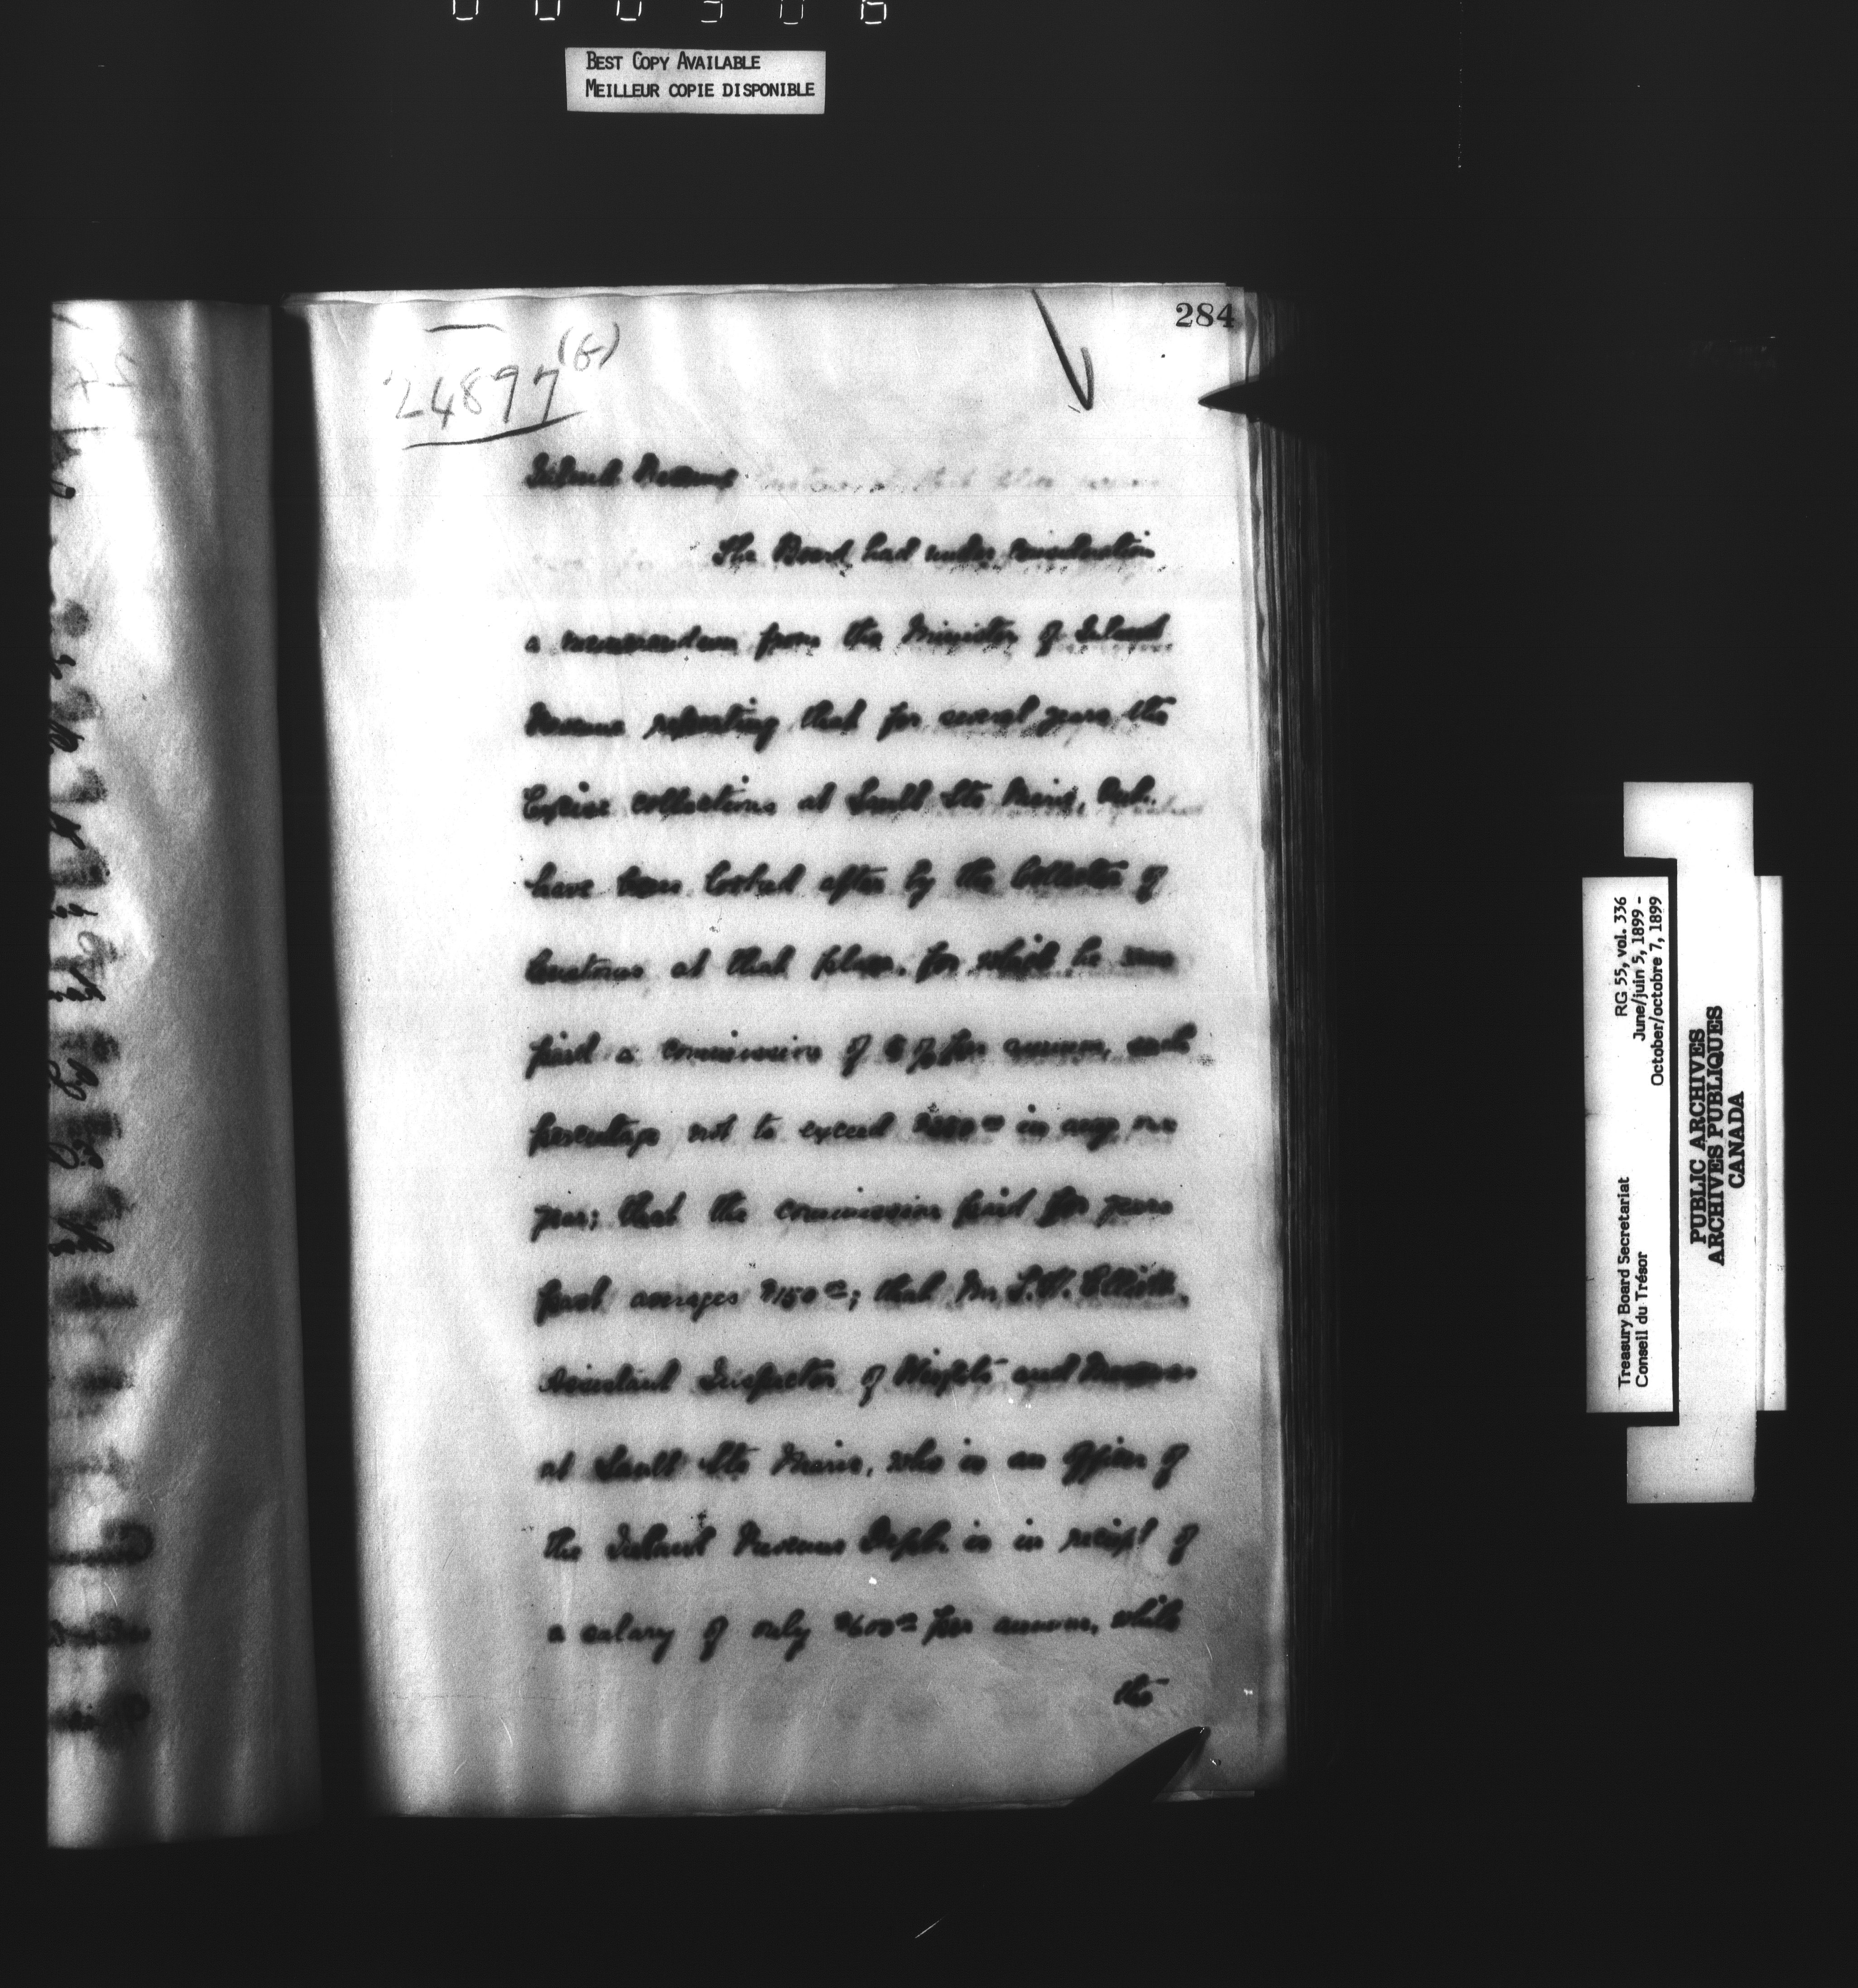 BEST COPY AVAILABLE
MEILLEUR COPIE DISPONIBLE
284
24897 (G)
Inland Revenue
The Board had under consideration
a memorandum from the Minister of Inland
Revenue reporting that for several years the
Excise collections at Sault Ste Marie, Ont.
have been looked after by the Collector of
Customs at that place, for which he was
paid a commission of % per annum, such
percentage not to exceed in any one
year; that the commission paid for years
past averages $150 00; that Mr. Elliott,
Assistant Inspector of Weights and Measures
at Sault Ste Marie, who is an officer of
the Inland Revenue Dept. is in receipt of
a salary of only $600 00 per annum, while
the
Treasury Board Secretariat
Conseil du Trésor
RG 55, vol. 336
June/juin 5, 1899 -
October/octobre 7, 1899
PUBLIC ARCHIVES
ARCHIVES PUBLIQUES
CANADA